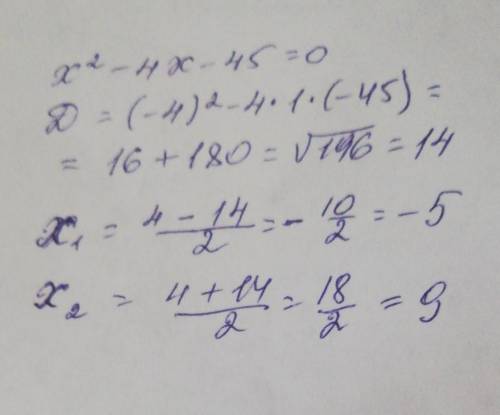 x² - 4x - 45 = 0
D = (-4)² - 4 · 1 · (-45) =
= 16 + 180 = √196 = 14
x₁ = (4 - 14)/2 = - 10/2 = -5
x₂ = (4 + 14)/2 = 18/2 = 9